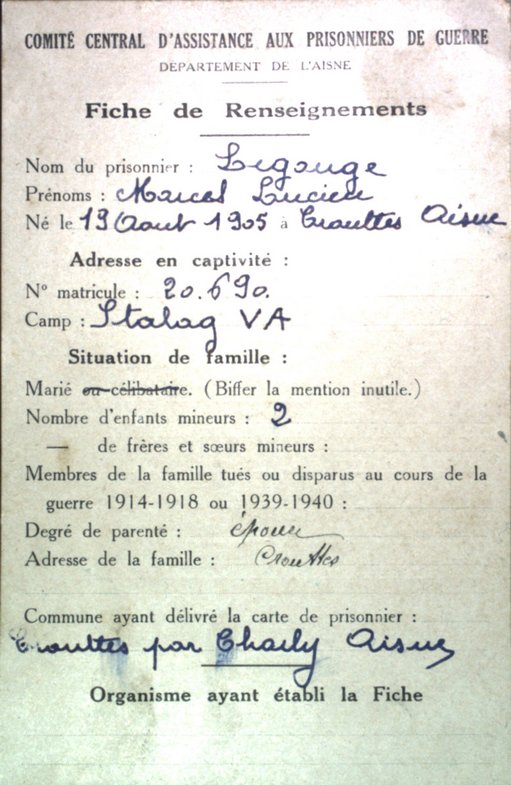 COMITÉ CENTRAL D'ASSISTANCE AUX PRISONNIERS DE GUERRE
DEPARTEMENT DE L'AISNE
Fiche de Renseignements
Nom du prisonnier : Legouge
Prénoms : Marcel Lucien
Né le 19 Aout 1905 à Crouttes Aisne
Adresse en captivité :
N° matricule : 20.690.
Camp : Stalag VA
Situation de famille :
Marié ou célibataire. (Biffer la mention inutile.)
Nombre d'enfants mineurs : 2
— de frères et sœurs mineurs :
Membres de la famille tués ou disparus au cours de la
guerre 1914-1918 ou 1939-1940 :
Degré de parenté : époux
Adresse de la famille : Crouttes
Commune ayant délivré la carte de prisonnier :
Crouttes par Charly Aisne
Organisme ayant établi la Fiche